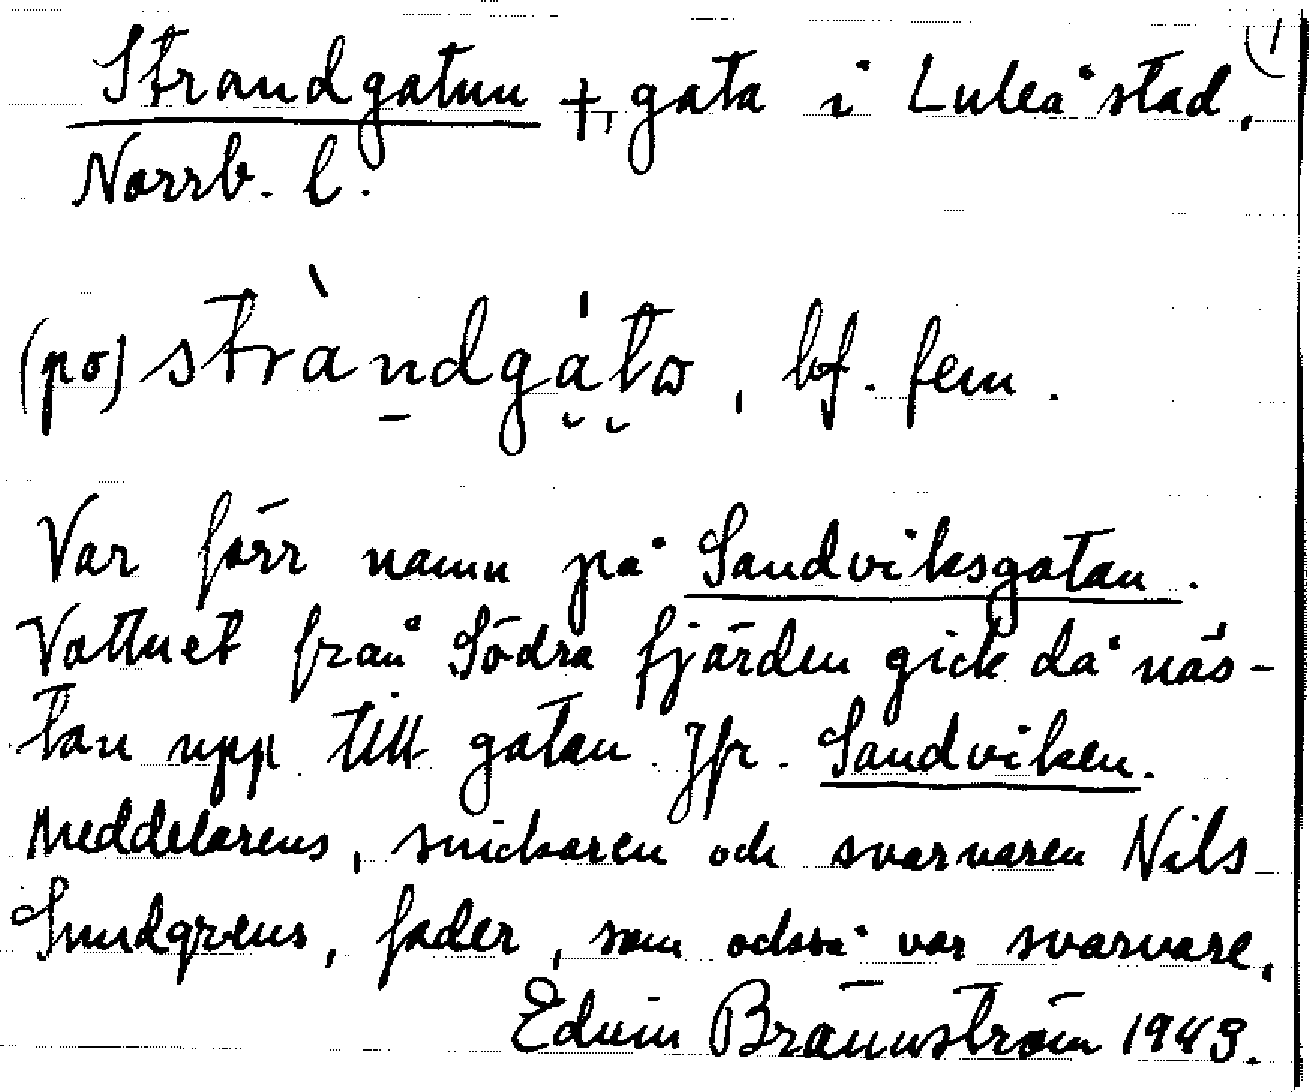 Strandgatan †, gata i Luleå stad, 1)
Norrb. l.
(po) stràndgátω, bf. fem.
Var förr namn på Sandviksgatan.
Vattnet från Södra fjärden gick då näs-
tan upp till gatan. Jfr. Sandviken.
Meddelarens, snickaren och svarvaren Nils
Sundgrens, fader, som också var svarvare.
Edvin Brännström 1943.